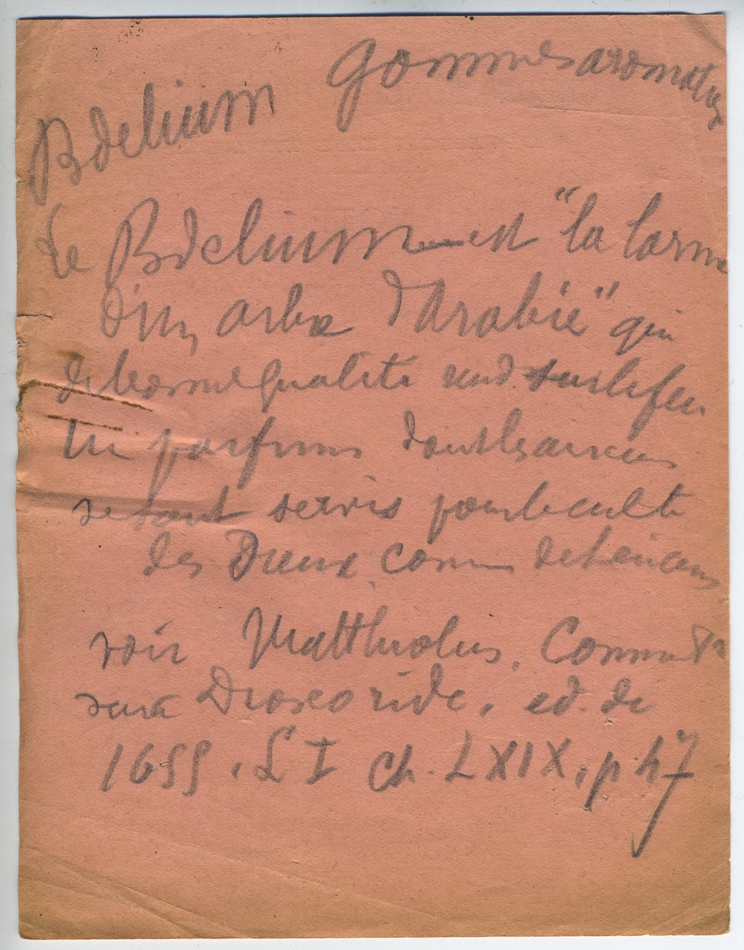 Bdelium Gommes aromatiq
Le Bdelium est "la larme
d'un arbre d'Arabie" qui
de bonne qualité rend sur le feu
un parfum dont les anciens
se sont servis pour le culte
des Dieux comme de l'encens
voir Matthiolus. Comment
sur Dioscoride. ed. de
1655. L I ch. LXIX. p 47